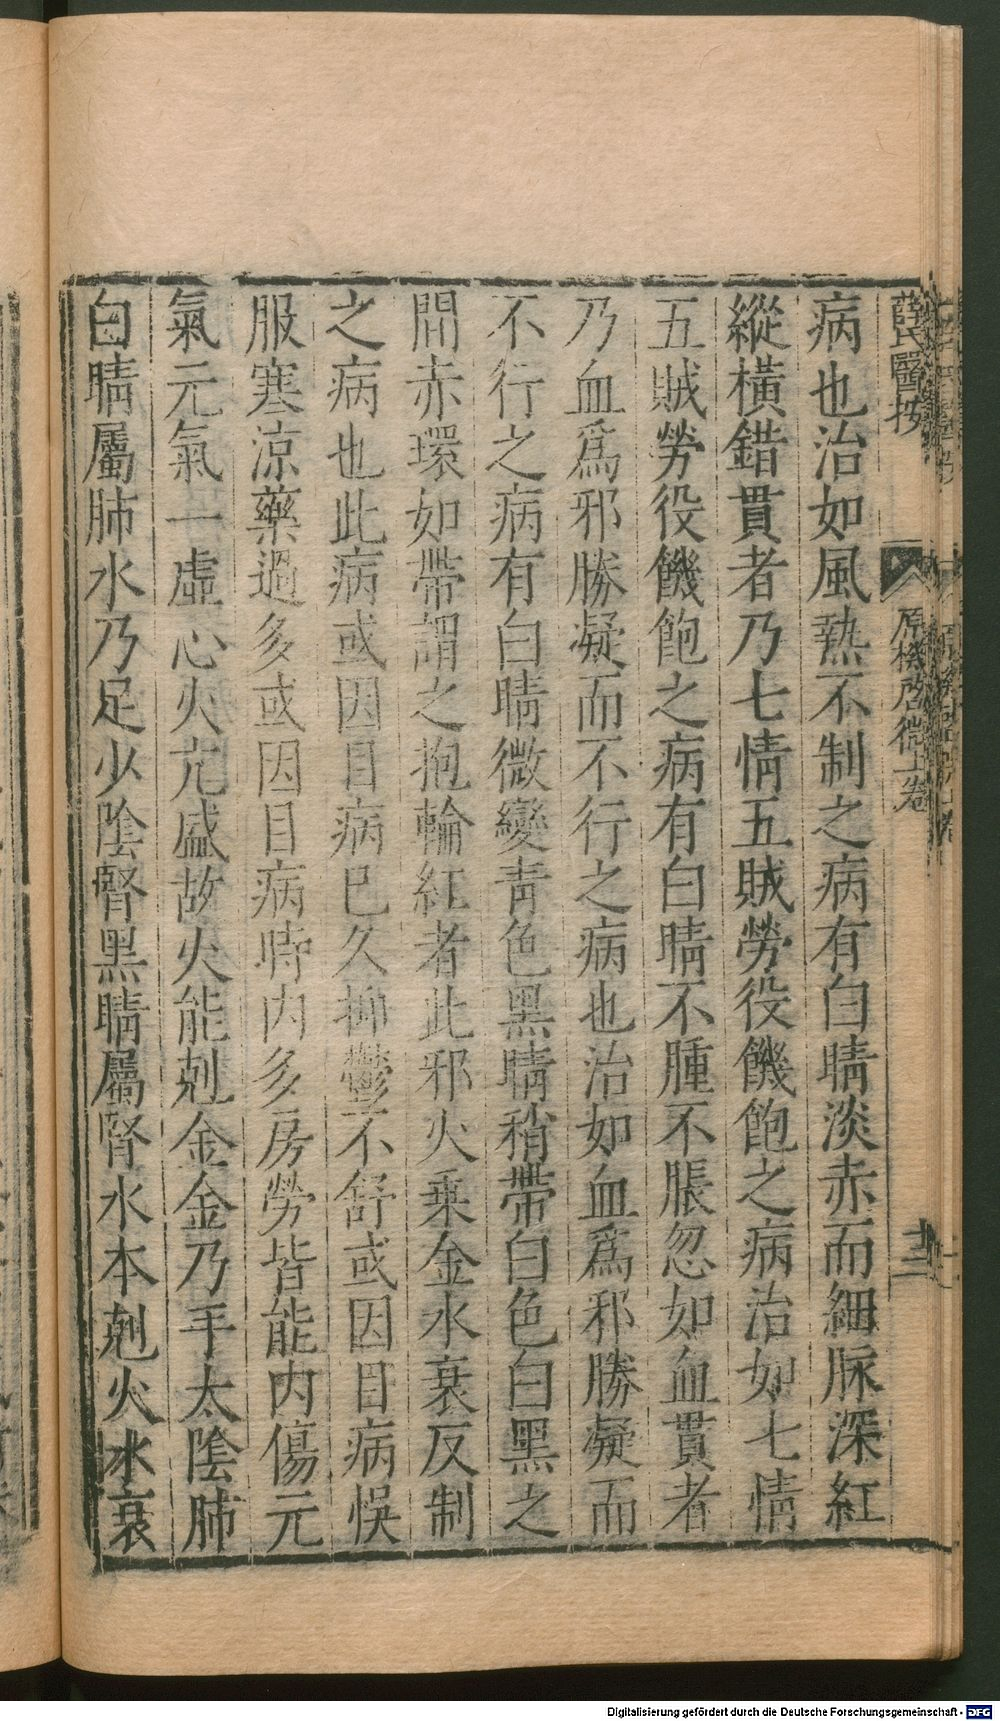 薛氏醫按
原機啓微上卷
十二
病也治如風熱不制之病有白睛淡赤而細脉深紅
縱橫錯貫者乃七情五賊勞役饑飽之病治如七情
五賊勞役饑飽之病有白睛不腫不脹忽如血貫者
乃血爲邪勝凝而不行之病也治如血爲邪勝凝而
不行之病有白睛微變青色黑睛稍帶白色白黑之
間赤環如帶謂之抱輪紅者此邪火乗金水衰反制
之病也此病或因目病已久抑鬱不舒或因目病悞
服寒涼藥過多或因目病時内多房勞皆能内傷元
氣元氣一虛心火亢盛故火能剋金金乃手太陰肺
白睛屬肺水乃足少陰腎黑睛屬腎水本剋火水衰
Digitalisierung gefördert durch die Deutsche Forschungsgemeinschaft - DFG